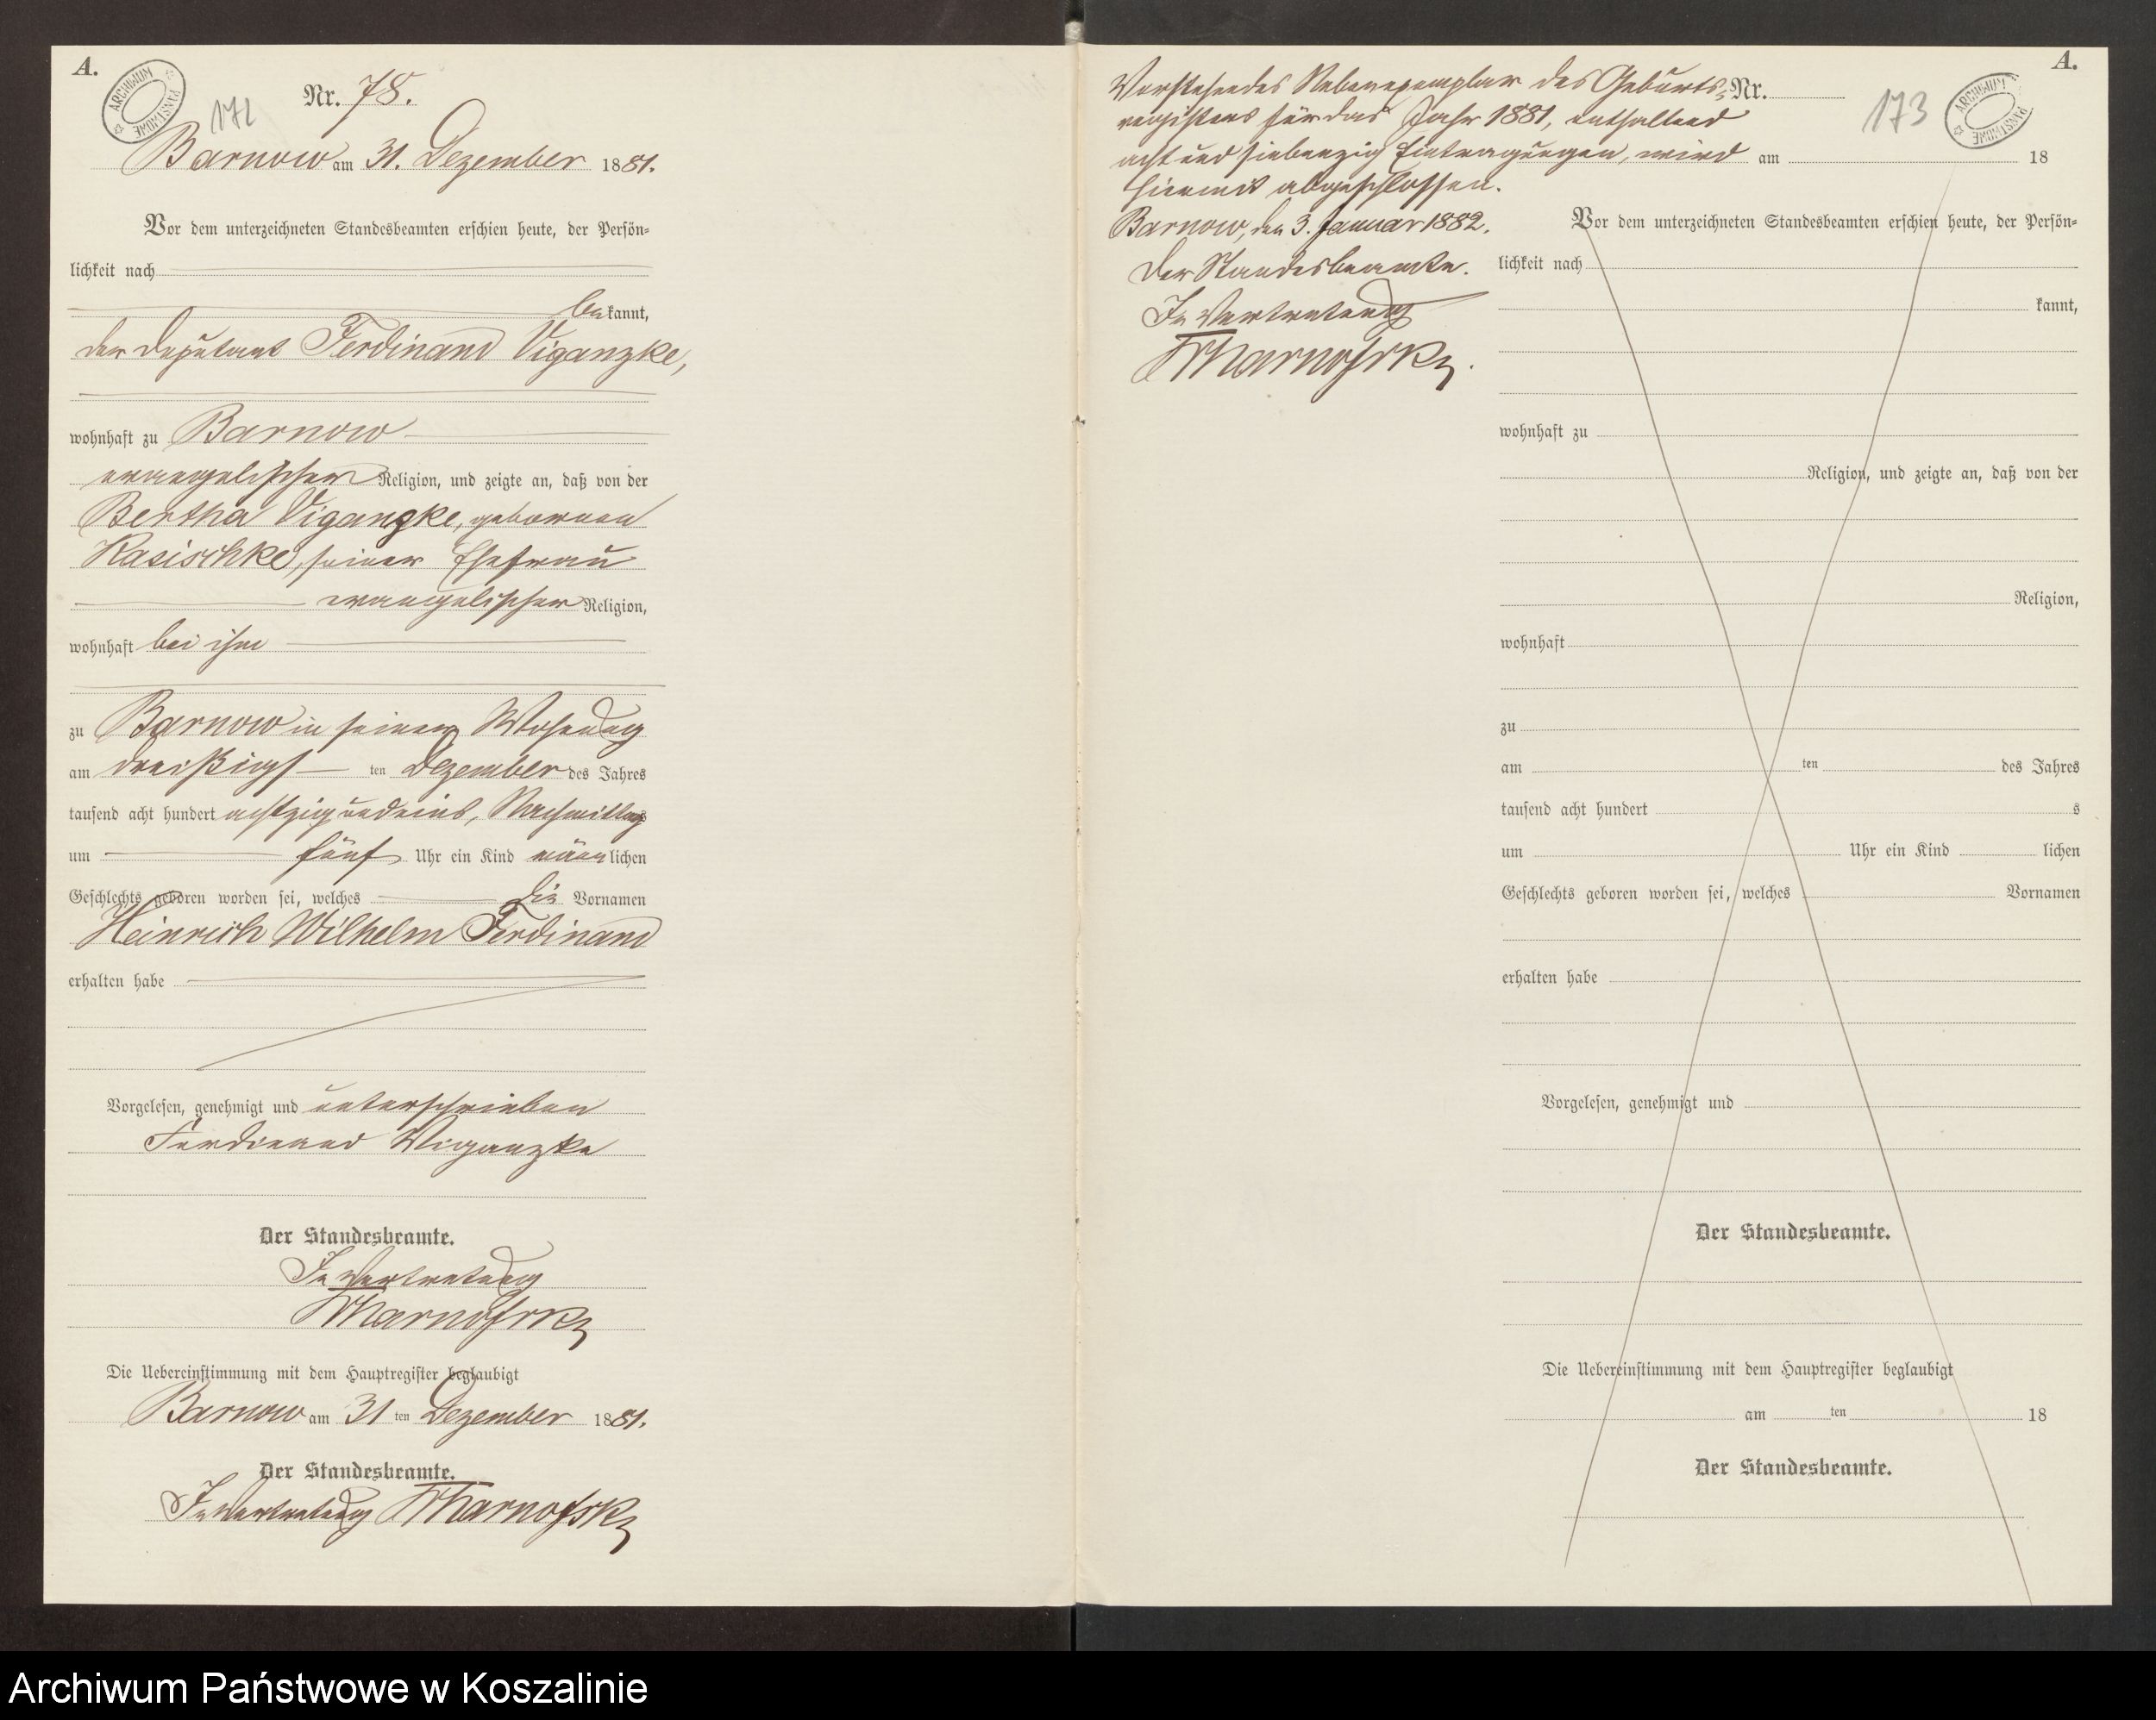 A.
ARCHIWUM PAŃSTWOWE
Nr. 78.
172
Barnow am 31. Dezember 1881.
Vor dem unterzeichneten Standesbeamten erschien heute, der Persön-
lichkeit nach
be kannt,
der Deputant Ferdinand Viganzke,
wohnhaft zu Barnow
evangelischer Religion, und zeigte an, daß von der
Bertha Viganzke, geborenen
Rasischke, seiner Ehefrau
evangelischer Religion,
wohnhaft bei ihm
zu Barnow in seiner Wohnung
am dreißigst ten Dezember des Jahres
tausend acht hundert achtzig und eins, Nachmittags
um fünf Uhr ein Kind männ lichen
Geschlechts geboren worden sei, welches die Vornamen
Heinrich Wilhelm Ferdinand
erhalten habe
Vorgelesen, genehmigt und unterschrieben
Ferdinand Wiganzke
Der Standesbeamte.
In Vertretung
Die Uebereinstimmung mit dem Hauptregister beglaubigt
Barnow am 31 ten Dezember 1881.
Der Standesbeamte.
In Vertretung
Vorstehendes Nebenexemplar des Geburts-
registers für das Jahr 1881, enthaltend
acht und siebenzig Eintragungen, wird
hiermit abgeschlossen.
Barnow, den 3. Januar 1882.
Der Standesbeamte.
In Vertretung
A.
ARCHIWUM PAŃSTWOWE
Nr.
173
am 18
Vor dem unterzeichneten Standesbeamten erschien heute, der Persön-
lichkeit nach
kannt,
wohnhaft zu
Religion, und zeigte an, daß von der
Religion,
wohnhaft
zu
am ten des Jahres
tausend acht hundert s
um Uhr ein Kind lichen
Geschlechts geboren worden sei, welches Vornamen
erhalten habe
Vorgelesen, genehmigt und
Der Standesbeamte.
Die Uebereinstimmung mit dem Hauptregister beglaubigt
am ten 18
Der Standesbeamte.
Archiwum Państwowe w Koszalinie